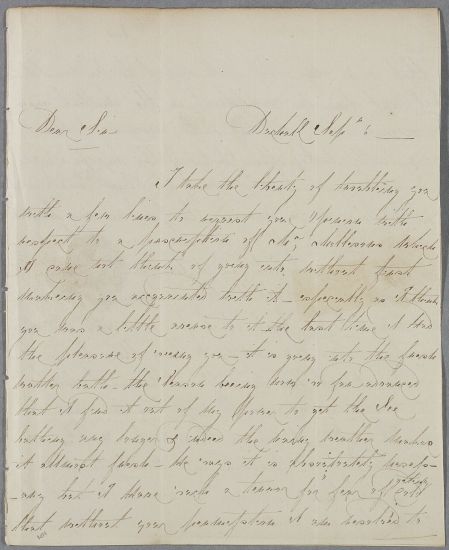 Dear Sir
Duckett Sepr 6
I take the liberty of troubling you
with a few lines to request your Opinion with
respect to a prescription of Mr Sullivans which
I came not think of going into without first
making you acquainted with it - especially as I think
you was a little averse to it the last time I had
the pleasure of seeing you - it is going into the fresh
water bath - the Season being now so far advanced
that I find it out of my Power to get the Sea
bathing any longer & indeed the damp weather makes
it almost fresh - he says it is absolutely neces-
-ary but I have such a terror for fear of getting cold
that without your permission I am resolved to